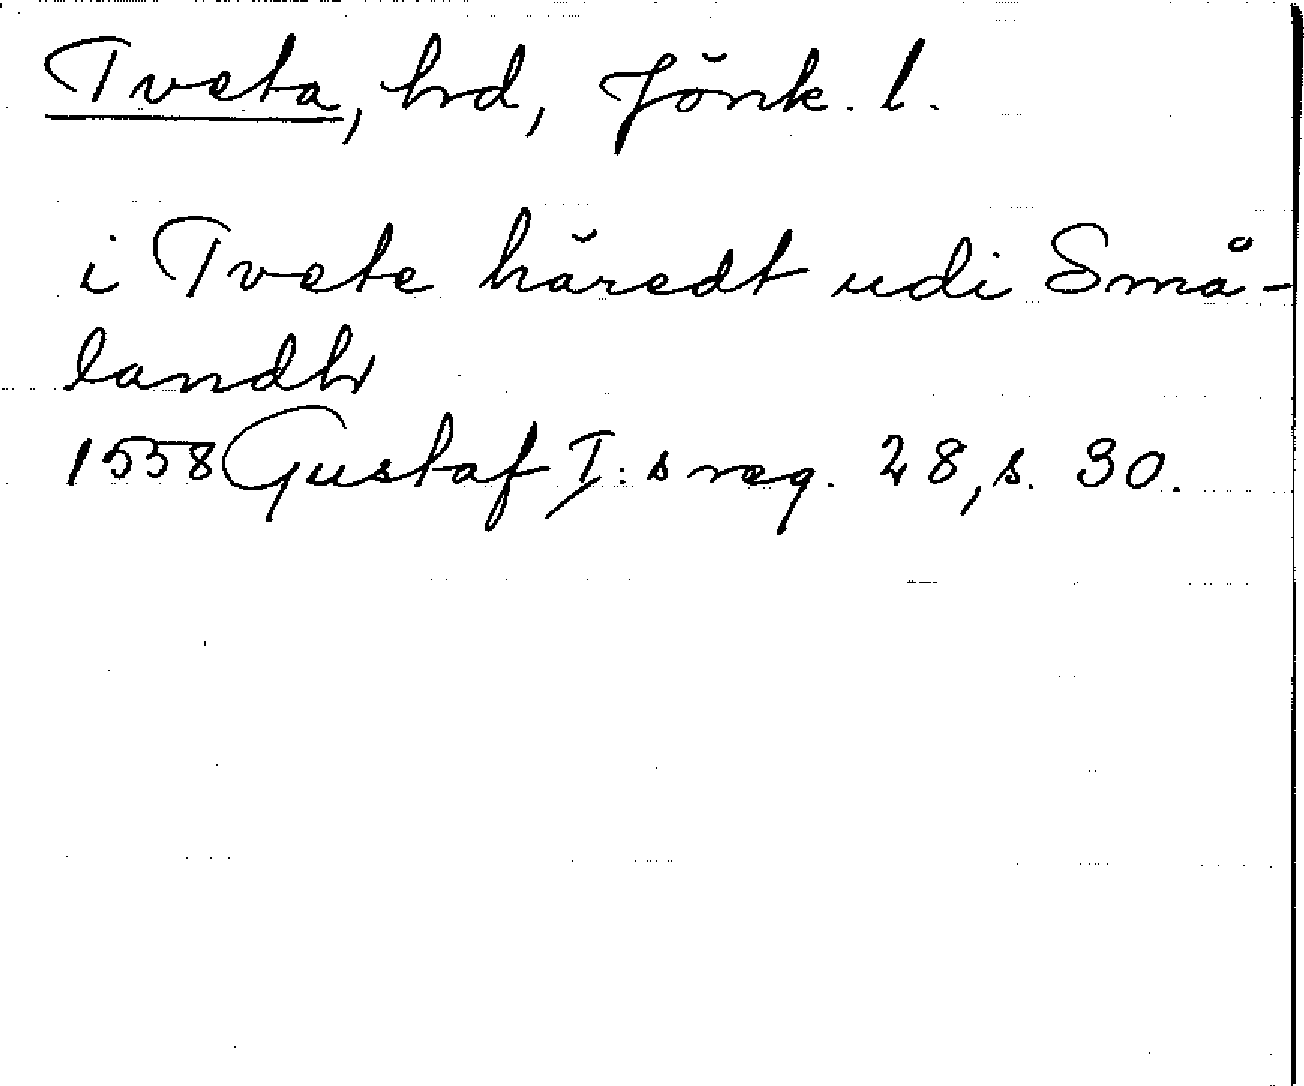 Tveta, hd, Jönk. l.
i Tvete häredt udi Små-
landh
1558 Gustaf I:s reg. 28, s. 30.